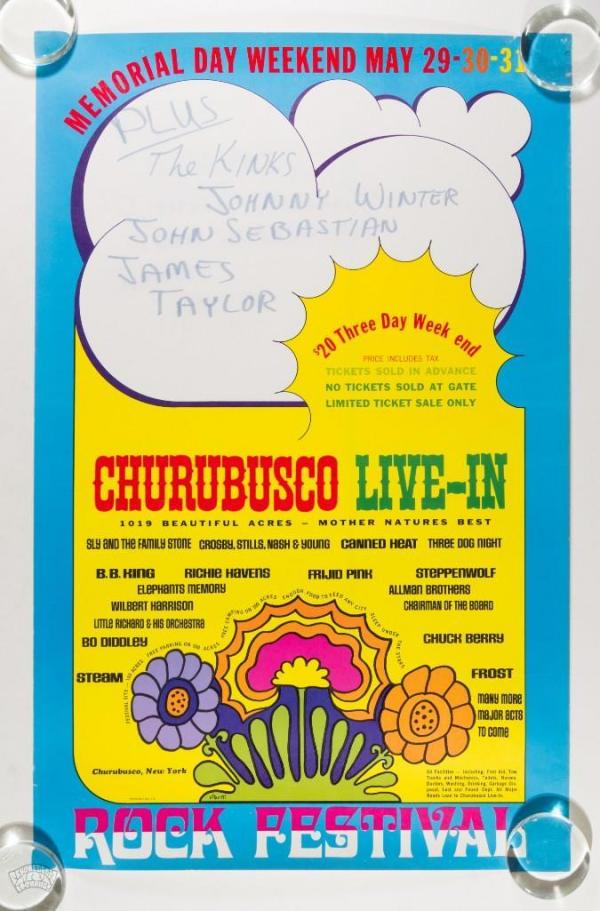 MEMORIAL DAY WEEKEND MAY 29-30-31
PLUS
The KINKS
JOHNNY WINTER
JOHN SEBASTIAN
JAMES
TAYLOR
$20 Three Day Week end
PRICE INCLUDES TAX
TICKETS SOLD IN ADVANCE
NO TICKETS SOLD AT GATE
LIMITED TICKET SALE ONLY
CHURUBUSCO LIVE-IN
1019 BEAUTIFUL ACRES – MOTHER NATURES BEST
SLY AND THE FAMILY STONE CROSBY, STILLS, NASH & YOUNG CANNED HEAT THREE DOG NIGHT
B.B. KING RICHIE HAVENS FRIJID PINK STEPPENWOLF
ELEPHANTS MEMORY ALLMAN BROTHERS
WILBERT HARRISON CHAIRMAN OF THE BOARD
LITTLE RICHARD & HIS ORCHESTRA
BO DIDDLEY CHUCK BERRY
FREE PARKING ON 100 ACRES FREE CAMPING ON 100 ACRES ENOUGH FOOD TO FEED ANY CITY SLEEP UNDER THE STARS
STEAM FROST
many more
major acts
to come
Churubusco, New York
All Facilities – Including: First Aid, Tow
Trucks and Mechanics, Toilets, Nurses
Doctors, Washing, Drinking, Garbage Dis-
posal, Lost and Found Dept. All Major
Roads Lead to Churubusco Live-In.
ROCK FESTIVAL